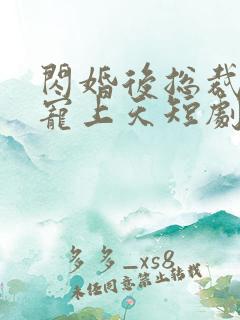 閃婚後總裁
寵上天短劇
多多_xs8
未經同意禁止轉載